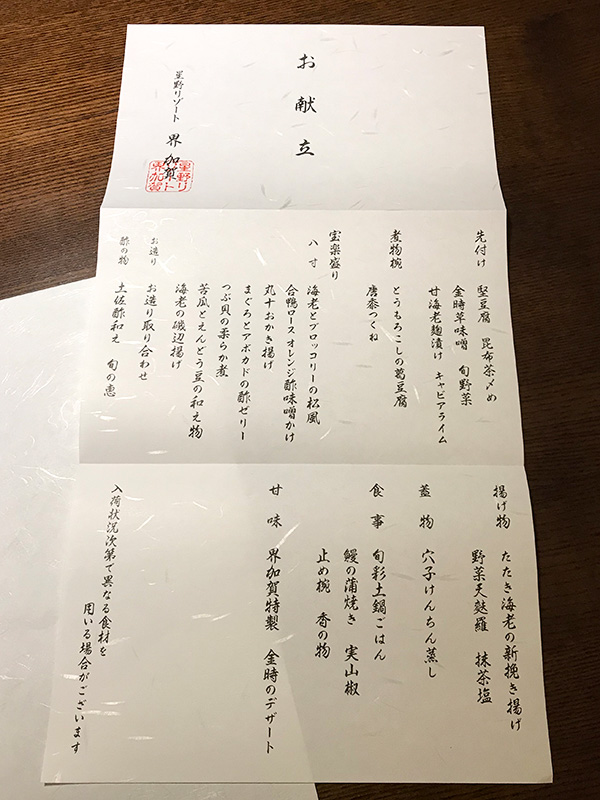 お献立
星野リゾート 界 加賀
星野リゾート界加賀
先付け 堅豆腐 昆布茶〆め
金時草味噌 旬野菜
甘海老麹漬け キャビアライム
煮物椀 とうもろこしの葛豆腐
つくね
宝楽盛り
八寸 海老とブロッコリーの松風
合鴨ロース オレンジ酢味噌かけ
丸十おかき揚げ
まぐろとアボカドの酢ゼリー
つぶ貝の柔らか煮
苦瓜とえんどう豆の和え物
海老の磯辺揚げ
お造り お造り取り合わせ
酢の物 土佐酢和え 旬の恵
揚げ物 たたき海老の新挽き揚げ
野菜天麩羅 抹茶塩
蓋物 穴子けんちん蒸し
食事 旬彩土鍋ごはん
鰻の蒲焼き 実山椒
止め椀 香の物
甘味 界加賀特製 金時のデザート
入荷状況次第で異なる食材を
用いる場合がございます